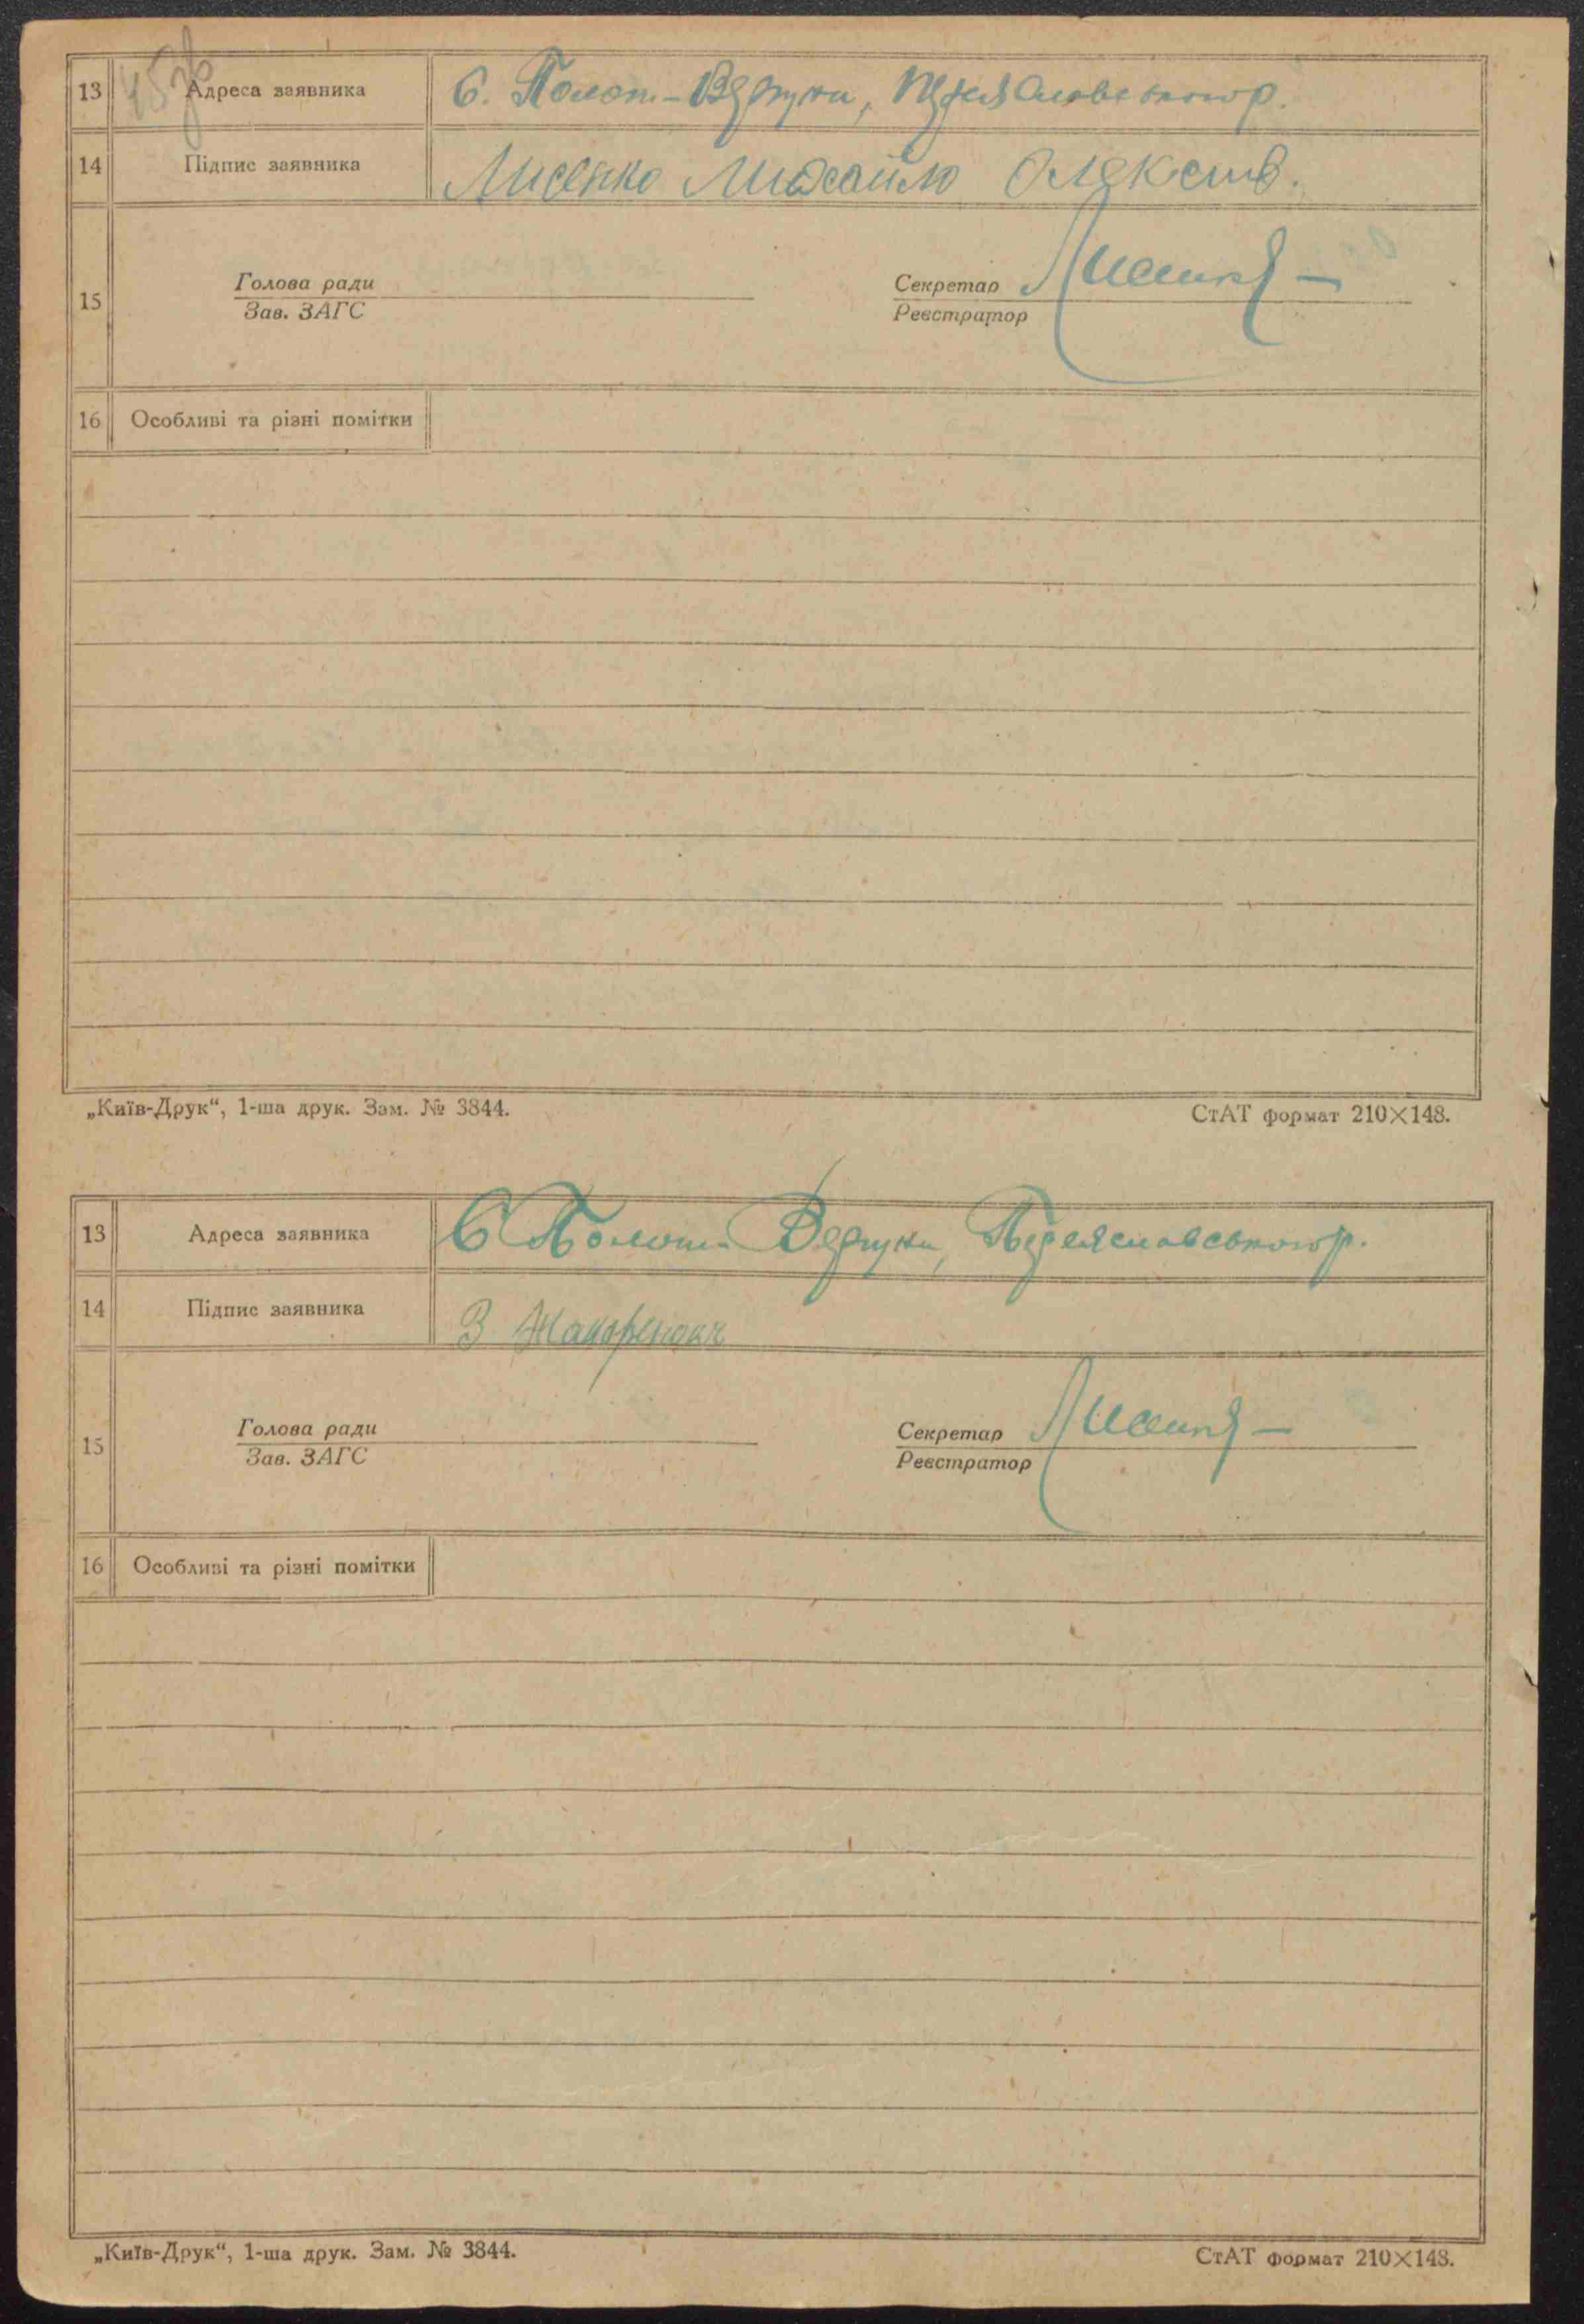 13 Адреса заявника С. Полот-Вергуни, Переяславського р.
14 Підпис заявника Лисенко Михайло Олексів.
15 Голова ради
Зав. ЗАГС
Секретар Лисенко
Реєстратор
16 Особливі та різні помітки
„Київ-Друк“, 1-ша друк. Зам. № 3844. СтАТ формат 210×148.
13 Адреса заявника С Полот. Вергуни, Переяславського р.
14 Підпис заявника З
15 Голова ради
Зав. ЗАГС
Секретар Лисенко
Реєстратор
16 Особливі та різні помітки
„Київ-Друк“, 1-ша друк. Зам. № 3844. СтАТ формат 210×148.